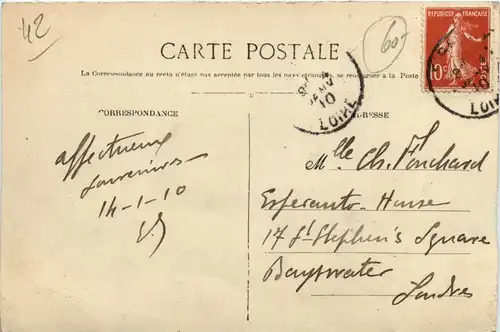 42
60f
CARTE POSTALE
REPUBLIQUE FRANÇAISE
10c
La Correspondance au recto n'étant pas acceptée par tous les pays étrangers, se renseigner à la Poste
JANV
10
LOIRE
CORRESPONDANCE
ADRESSE
affectueux
souvenirs
14-1-10
Mlle Ch. Fouchard
Esperanto-House
17 St Stephen's Square
Bayswater
Londres